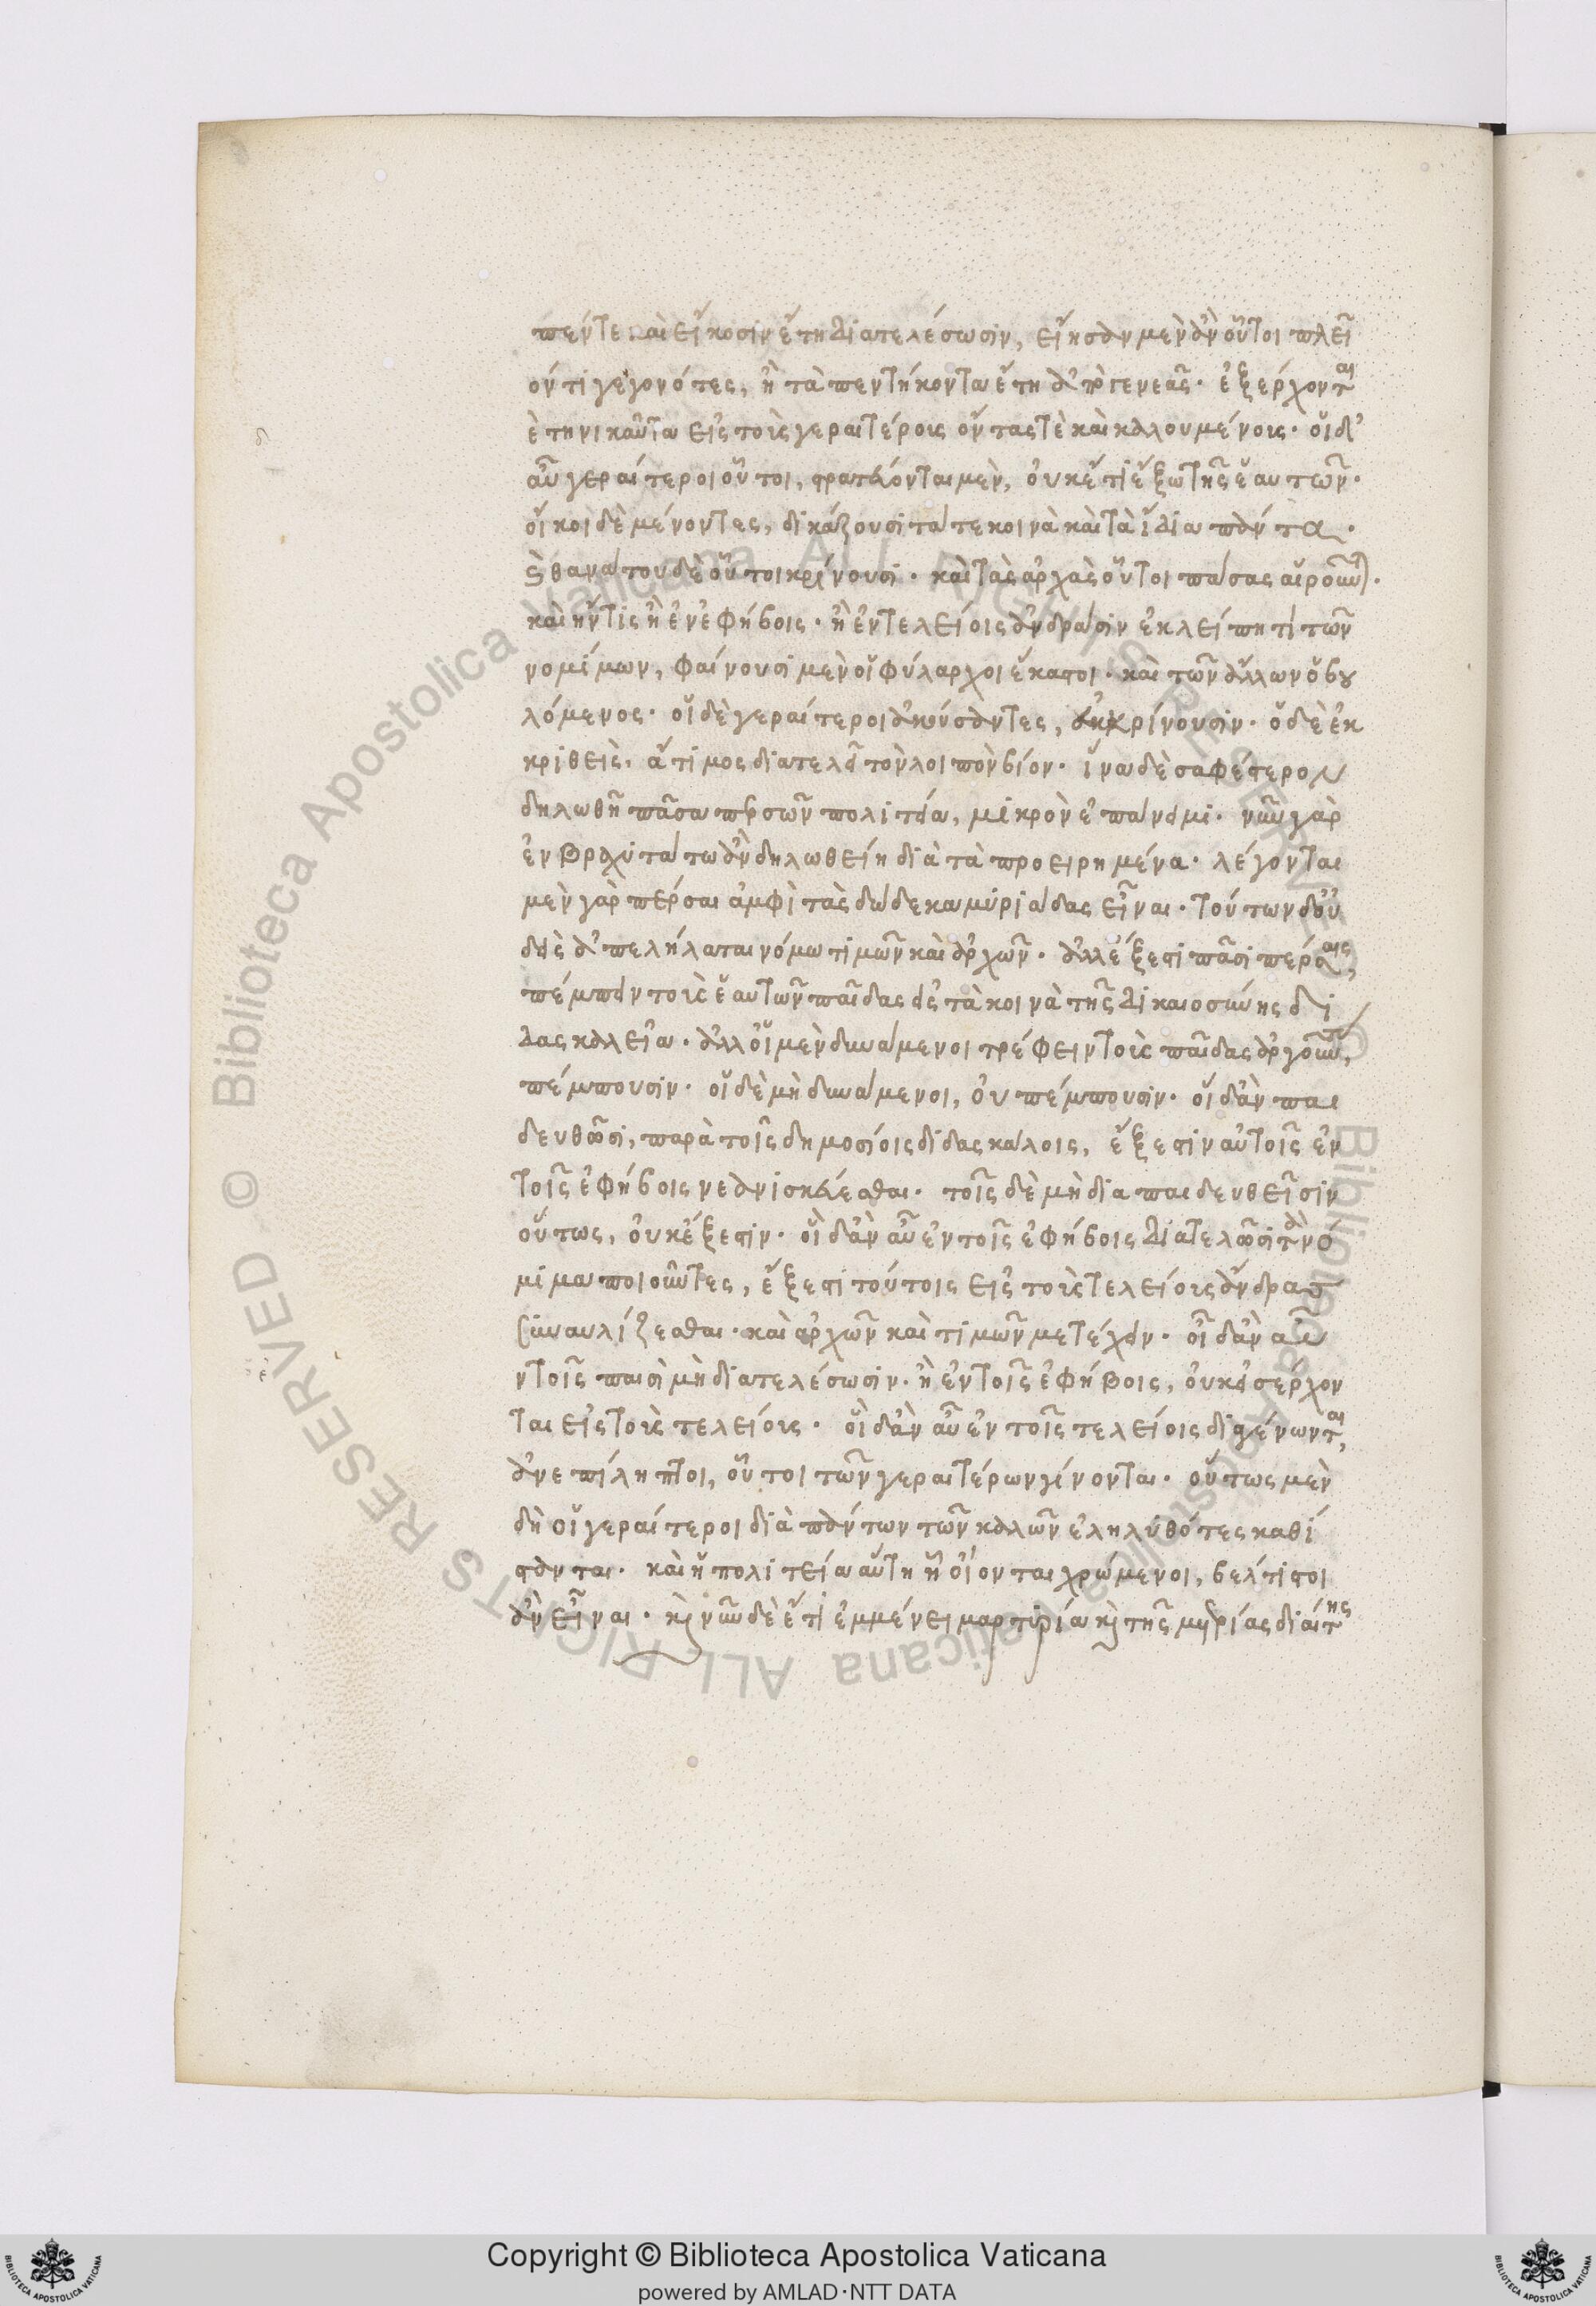 πέντε καὶ εἴκοσιν ἔτη διατελέσωσιν, εἴησαν μὲν ἂν οὗτοι πλεῖ
όν τι γεγονότες, ἢ τὰ πεντήκοντα ἔτη ἀπὸ γενεᾶς· ἐξέρχονται
ὲ τηνικαῦτα εἰς τοὺς γεραιτέρους ὄντας τὲ καὶ καλουμένους· οἱ δ'
αὖ γεραίτεροι οὗτοι, στρατεύονται μὲν, οὐκέτι ἔξω τῆς ἑαυτῶν·
οἴκοι δὲ μένοντες, δικάζουσι τά τε κοινὰ καὶ τὰ ἴδια πάντα·
ϛ θανάτου δὲ οὗτοι κρίνουσι· καὶ τὰς ἀρχὰς οὗτοι πάσας αἱροῦνται·
καὶ ἤν τις ἢ ἐν ἐφήβοις· ἢ ἐν τελείοις ἀνδράσιν ἐκλείπῃ τὶ τῶν
νομίμων, φαίνουσι μὲν οἱ φύλαρχοι ἕκαστοι· καὶ τῶν ἄλλων ὁ βου
λόμενος· οἱ δὲ γεραίτεροι ἀκούσαντες, ἐκκρίνουσιν· ὁ δὲ ἐκ
κριθεὶς, ἄτιμος διατελεῖ τὸν λοιπὸν βίον· ἵνα δὲ σαφέστερον
δηλωθῇ πᾶσα περσῶν πολιτεία, μικρὸν ἐπάνειμι· νῦν γὰρ
ἐν βραχυτάτω ἂν δηλωθείη διὰ τὰ προειρημένα· λέγονται
μὲν γὰρ πέρσαι ἀμφὶ τὰς δώδεκα μυριάδας εἶναι· τούτων δ' οὐ
δεὶς ἀπελήλαται νόμω τιμῶν καὶ ἀρχῶν· ἀλλ' ἔξεστι πᾶσι πέρσαις,
πέμπειν τοὺς ἑαυτῶν παῖδας εἰς τὰ κοινὰ τῆς δικαιοσύνης δι
δασκαλεῖα· ἀλλ' οἱ μὲν δυνάμενοι τρέφειν τοὺς παῖδας ἀργοῦντας,
πέμπουσιν· οἱ δὲ μὴ δυνάμενοι, οὐ πέμπουσιν· οἱ δ' ἂν παι
δευθῶσι, παρὰ τοῖς δημοσίοις διδασκάλοις, ἔξεστιν αὐτοῖς ἐν
τοῖς ἐφήβοις νεανισκεύεσθαι· τοῖς δὲ μὴ διαπαιδευθεῖσιν
οὕτως, οὐκ ἔξεστιν· οἱ δ' ἂν αὖ ἐν τοῖς ἐφήβοις διατελῶσι τὰ νό
μιμα ποιοῦντες, ἔξεστι τούτοις εἰς τοὺς τελείους ἄνδρας
συναυλίζεσθαι· καὶ ἀρχῶν καὶ τιμῶν μετέχειν· οἱ δ' ἂν αὖ
ν τοῖς παισὶ μὴ διατελέσωσιν· ἢ ἐν τοῖς ἐφήβοις, οὐκ εἰσέρχον
ται εἰς τοὺς τελείους· οἱ δ' ἂν αὖ ἐν τοῖς τελείοις διαγένωνται,
ἀνεπίληπτοι, οὗτοι τῶν γεραιτέρων γίνονται· οὕτως μὲν
δὴ οἱ γεραίτεροι διὰ πάντων τῶν καλῶν ἐληλυθότες καθί
στανται· καὶ ἡ πολιτεία αὕτη ἧ οἴονται χρώμενοι, βέλτιστοι
ἂν εἶναι· καὶ νῦν δὲ ἔτι ἐμμένει μαρτύρια καὶ τῆς μετρίας διαίτης